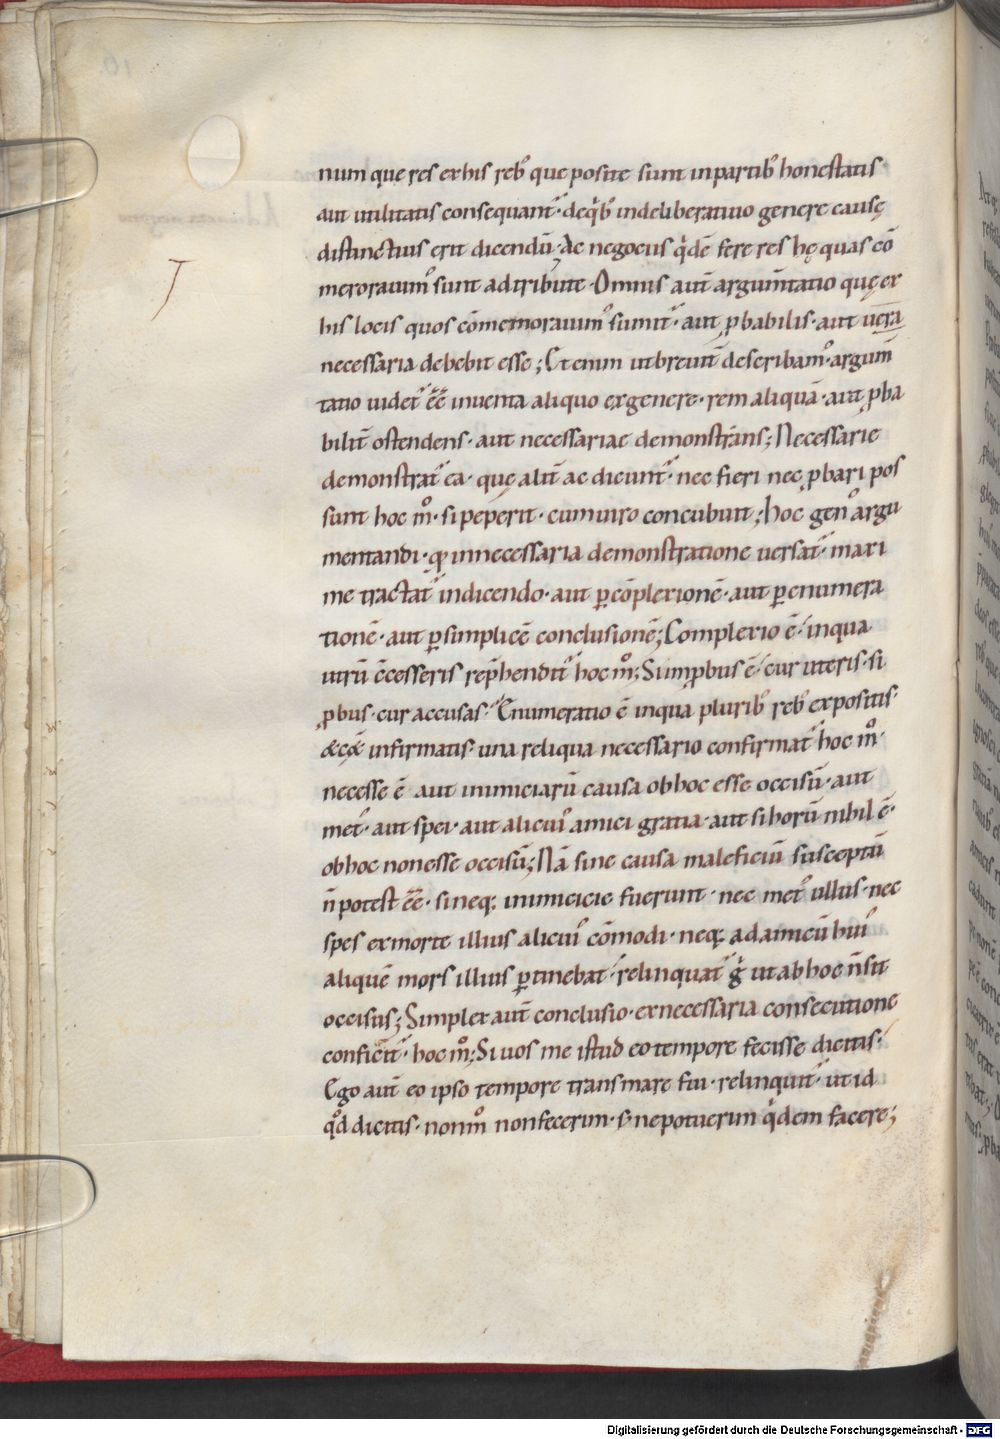 num que res ex his reb᾽ que posite sunt in partib᾽ honestatis·
aut utilitatis consequant᷑· de q̇b᾽ in deliberatiuo genere causę
distinctius erit dicendū· Ac negociis q̇dē fere res hę quas cō
memorauim᾽ sunt adtribute· Omnis aut̄ argum̄tatio quę ex
his locis quos cōmemorauim᾽ sumit᷑· aut ꝓbabilis· aut uera
necessaria debebit esse; Et enim ut breuit̄ describam᾽· argum̄
tatio uidet᷑ ēē inuenta aliquo ex genere· rem aliquā· aut ꝓba
bilit̄ ostendens· aut necessariae demonstrans; Necessarie
demonstrat᷑ ea· quę alit̄ ac dicunt᷑· nec fieri nec ꝓbari pos
sunt hoc m̊· si peperit· cum uiro concubuit; hoc gen᾽ argu
mentandi· qͥ in necessaria demonstratione uersat᷑· maxi
me tractat᷑ in dicendo· aut ꝑ cōplexionē· aut ꝑ enumera
tionē· aut ꝑ simplicē conclusionē; Complexio ē· in qua
utrū c̄cesseris rep̄hendit᷑ hoc m̊; Si inꝓbus ē· cur uteris· si
ꝓbus· cur accusas· Enumeratio ē in qua plurib᾽ reb᾽ expositis·
& cę&̄ infirmatis· una reliqua necessario confirmat᷑ hoc m̊·
necesse ē aut inimiciarū causa ob hoc esse occisū· aut
met᾽· aut spei· aut alicui᾽ amici gratia· aut si horū nihil ē·
ob hoc non esse occisū; Nā sine causa maleficiū susceptū
n̄ potest ēē· si neq; inimicicie fuerunt· nec met᾽ ullus· nec
spes ex morte illius alicui᾽ cōmodi· neq; ad amicū hui᾽
aliquē mors illius ꝑtinebat· relinquat᷑ g̊ ut ab hoc n̄ sit
occisus; Simplex aut̄ conclusio· ex necessaria consecutione
conficit᷑· hoc m̊; Si uos me istud eo tempore fecisse dicitis·
Ego aut̄ eo ipso tempore trans mare fui· relinquit᷑· ut id
q̊d dicitis· non m̊ non fecerim· s; ne potuerim q̇dem facere;
Digitalisierung gefördert durch die Deutsche Forschungsgemeinschaft - DFG